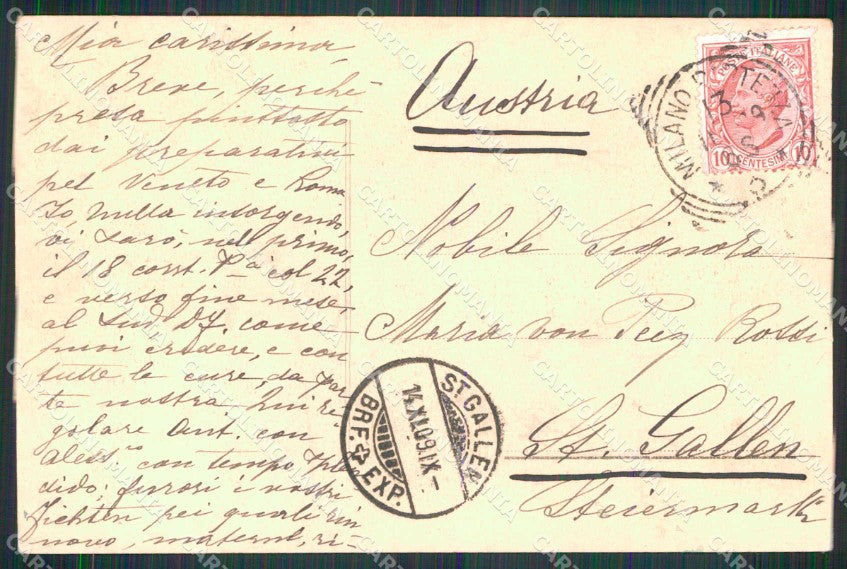 Mia carissima,
Breve, perchè
presa piuttosto
dai preparativi
pel Veneto e Roma
Io nulla insorgendo,
vi sarò, nel primo,
il 18 corr. col 22,
e verso fine mese,
al Sud. come
puoi credere, e con
tutte le cure, da par
te nostra
golare Ant. con
Aless.ro con tempo
dido; furori i nostri
Fichten pei quali rin
novo, matern., ri-
Austria
Nobile Signora
Maria von Rossi
St. Gallen
Steiermark
POSTE ITALIANE
10 CENTESIMI 10
MILANO
ST. GALLEN
14.XI.09.IX-
BRF. EXP.
CARTOLINOMANIA